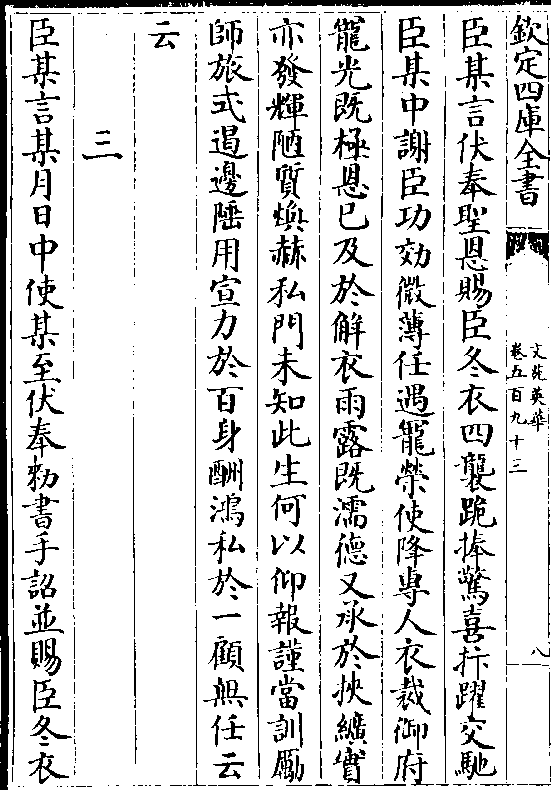 欽定四庫全書
文苑英華
卷五百九十三
八
臣某言伏奉聖恩賜臣冬衣四襲跪捧驚喜抃躍交馳
臣某中謝臣功效微薄任遇寵榮使降專人衣裁御府
寵光既極恩已及於解衣雨露既濡德又承於挾纊實
亦發輝陋質煥赫私門未知此生何以仰報謹當訓勵
師旅式遏邊陲用宣力於百身酬鴻私於一顧無任云
云
三
臣某言某月日中使某至伏奉勅書手詔並賜臣冬衣